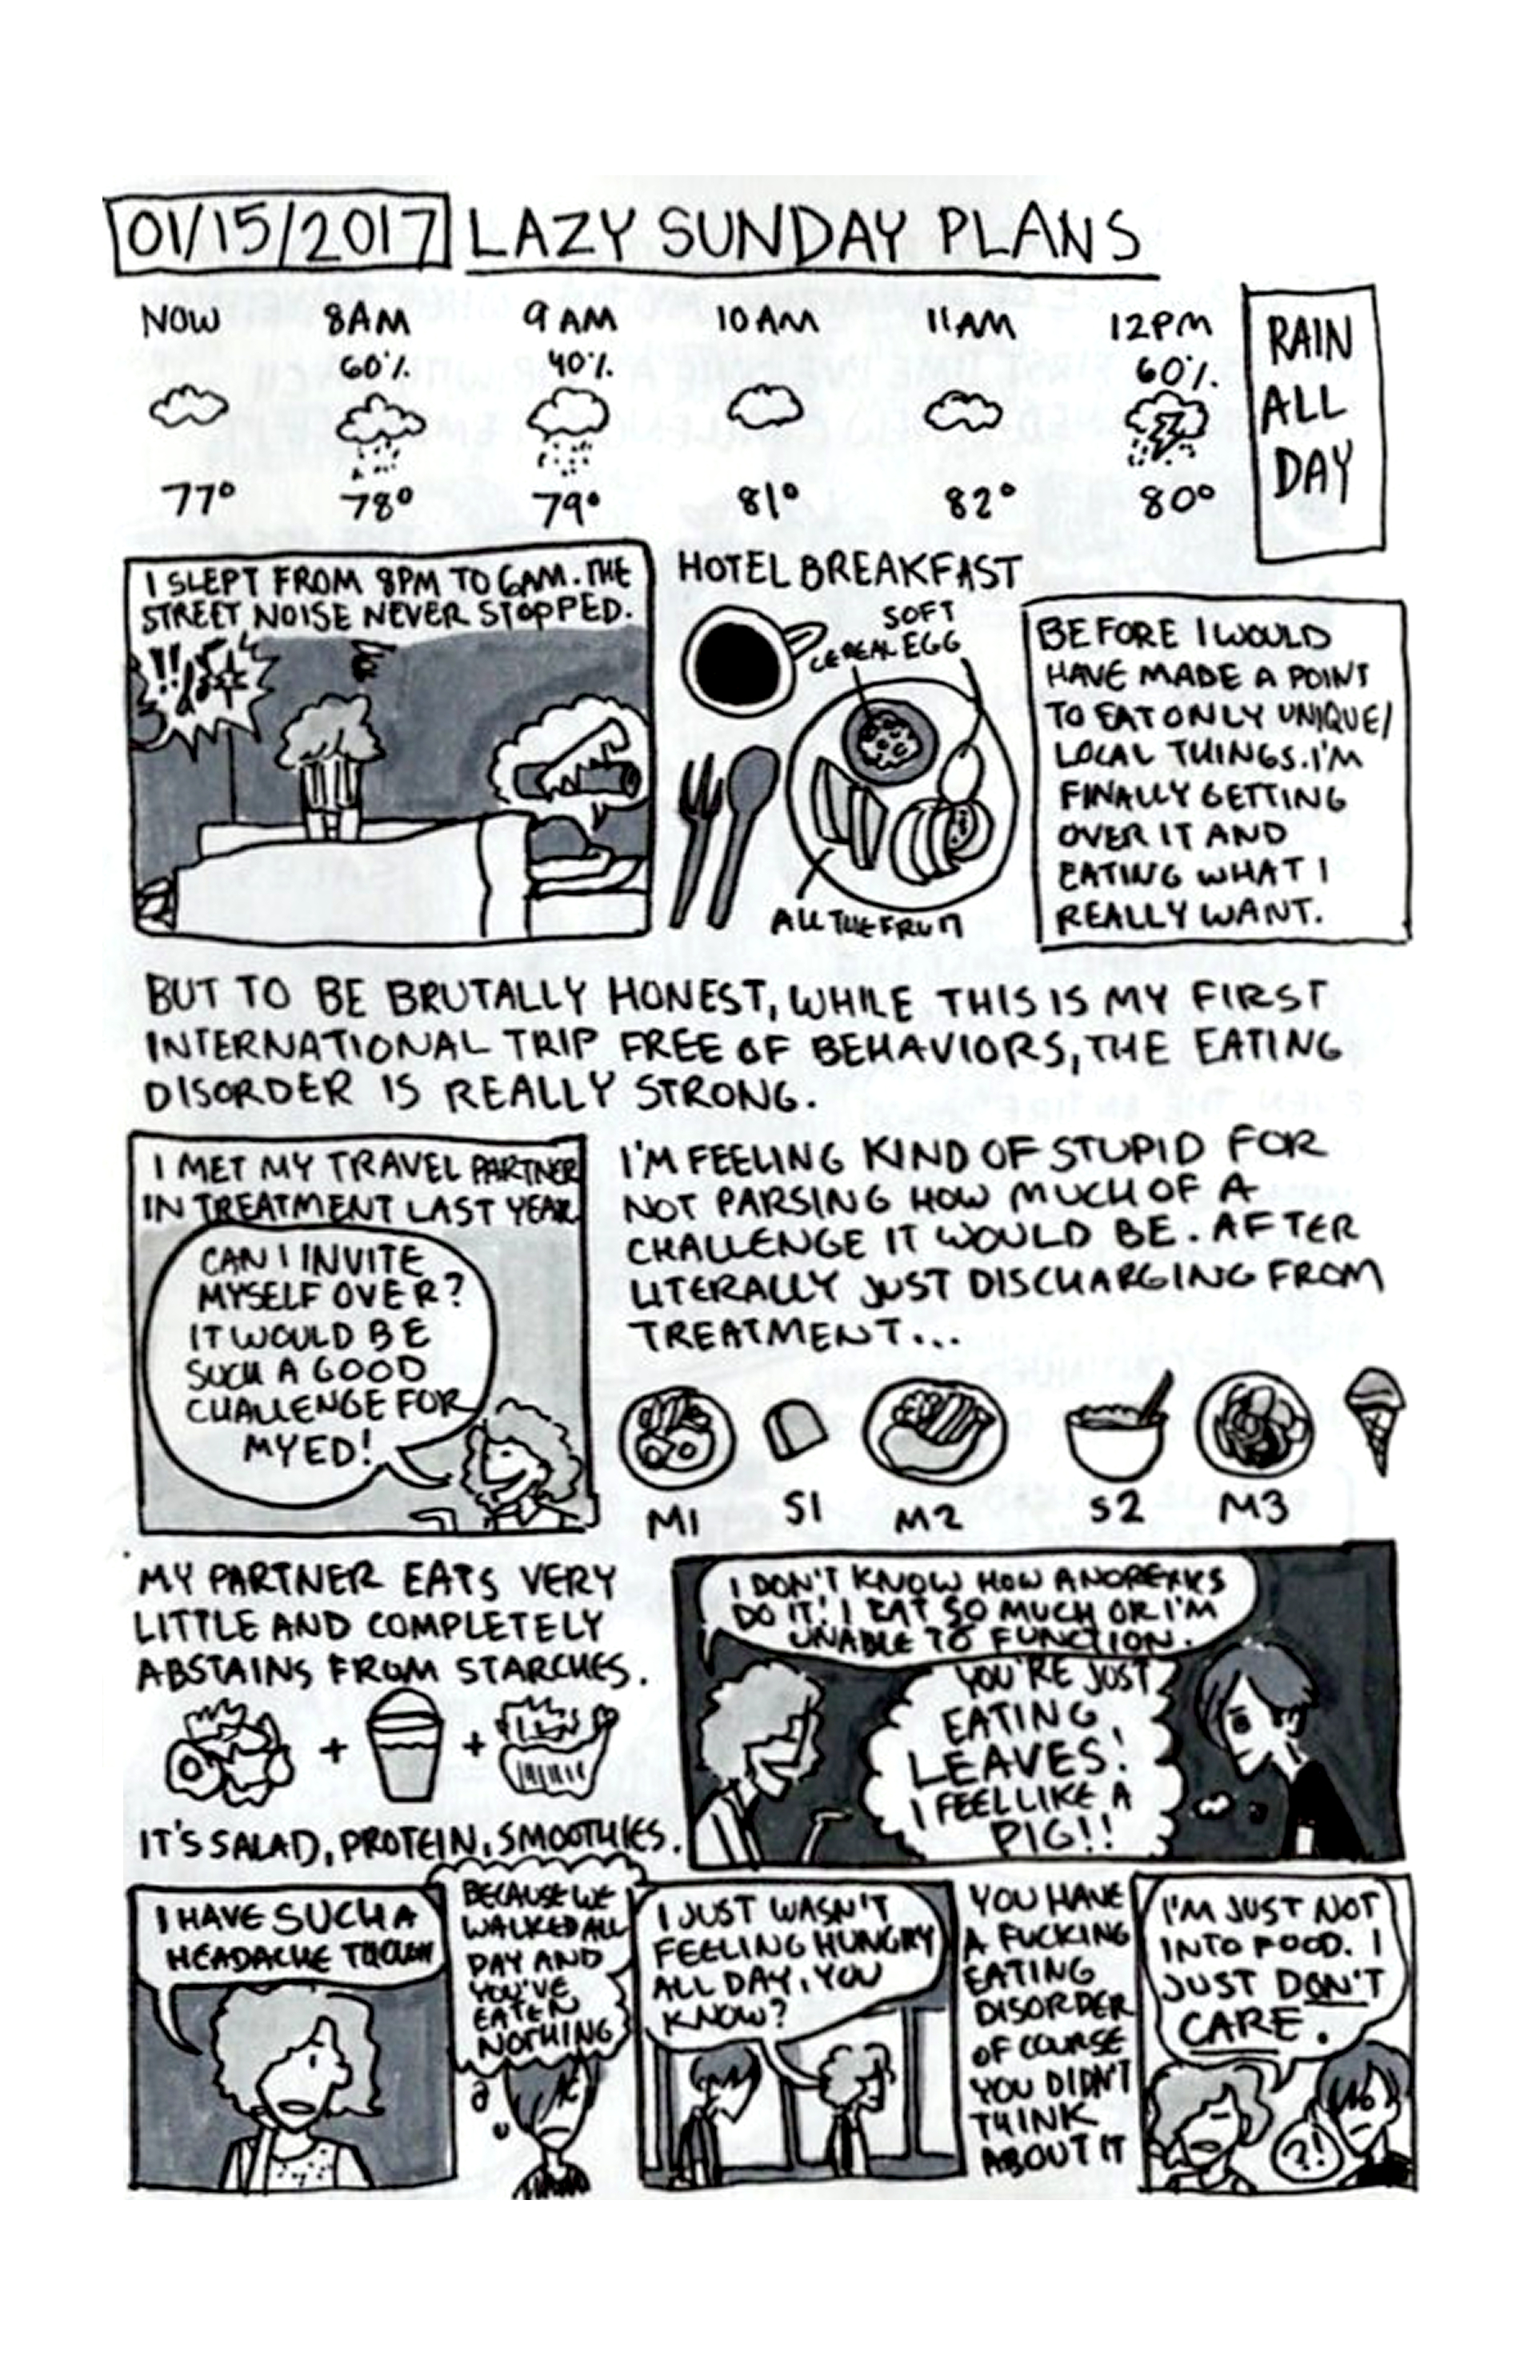 01/15/2017 LAZY SUNDAY PLANS
NOW 8AM 9AM 10AM 11AM 12PM
60% 40% 60%
77° 78° 79° 81° 82° 80°
RAIN
ALL
DAY
I SLEPT FROM 8PM TO 6AM. THE
STREET NOISE NEVER STOPPED.
HOTEL BREAKFAST
SOFT
CEREAL EGG
ALL THE FRUIT
BEFORE I WOULD
HAVE MADE A POINT
TO EAT ONLY UNIQUE/
LOCAL THINGS. I'M
FINALLY GETTING
OVER IT AND
EATING WHAT I
REALLY WANT.
BUT TO BE BRUTALLY HONEST, WHILE THIS IS MY FIRST
INTERNATIONAL TRIP FREE OF BEHAVIORS, THE EATING
DISORDER IS REALLY STRONG.
I MET MY TRAVEL PARTNER
IN TREATMENT LAST YEAR
CAN I INVITE
MYSELF OVER?
IT WOULD BE
SUCH A GOOD
CHALLENGE FOR
MY ED!
I'M FEELING KIND OF STUPID FOR
NOT PARSING HOW MUCH OF A
CHALLENGE IT WOULD BE. AFTER
LITERALLY JUST DISCHARGING FROM
TREATMENT...
M1 S1 M2 S2 M3
MY PARTNER EATS VERY
LITTLE AND COMPLETELY
ABSTAINS FROM STARCHES.
+ +
IT'S SALAD, PROTEIN, SMOOTHIES.
I DON'T KNOW HOW ANOREXICS
DO IT! I EAT SO MUCH OR I'M
UNABLE TO FUNCTION.
YOU'RE JUST
EATING
LEAVES!
I FEEL LIKE A
PIG!!
I HAVE SUCH A
HEADACHE
BECAUSE WE
WALKED ALL
DAY AND
YOU'VE
EATEN
NOTHING
I JUST WASN'T
FEELING HUNGRY
ALL DAY, YOU
KNOW?
YOU HAVE
A FUCKING
EATING
DISORDER
OF COURSE
YOU DIDN'T
THINK
ABOUT IT
I'M JUST NOT
INTO FOOD. I
JUST DON'T
CARE.
?!